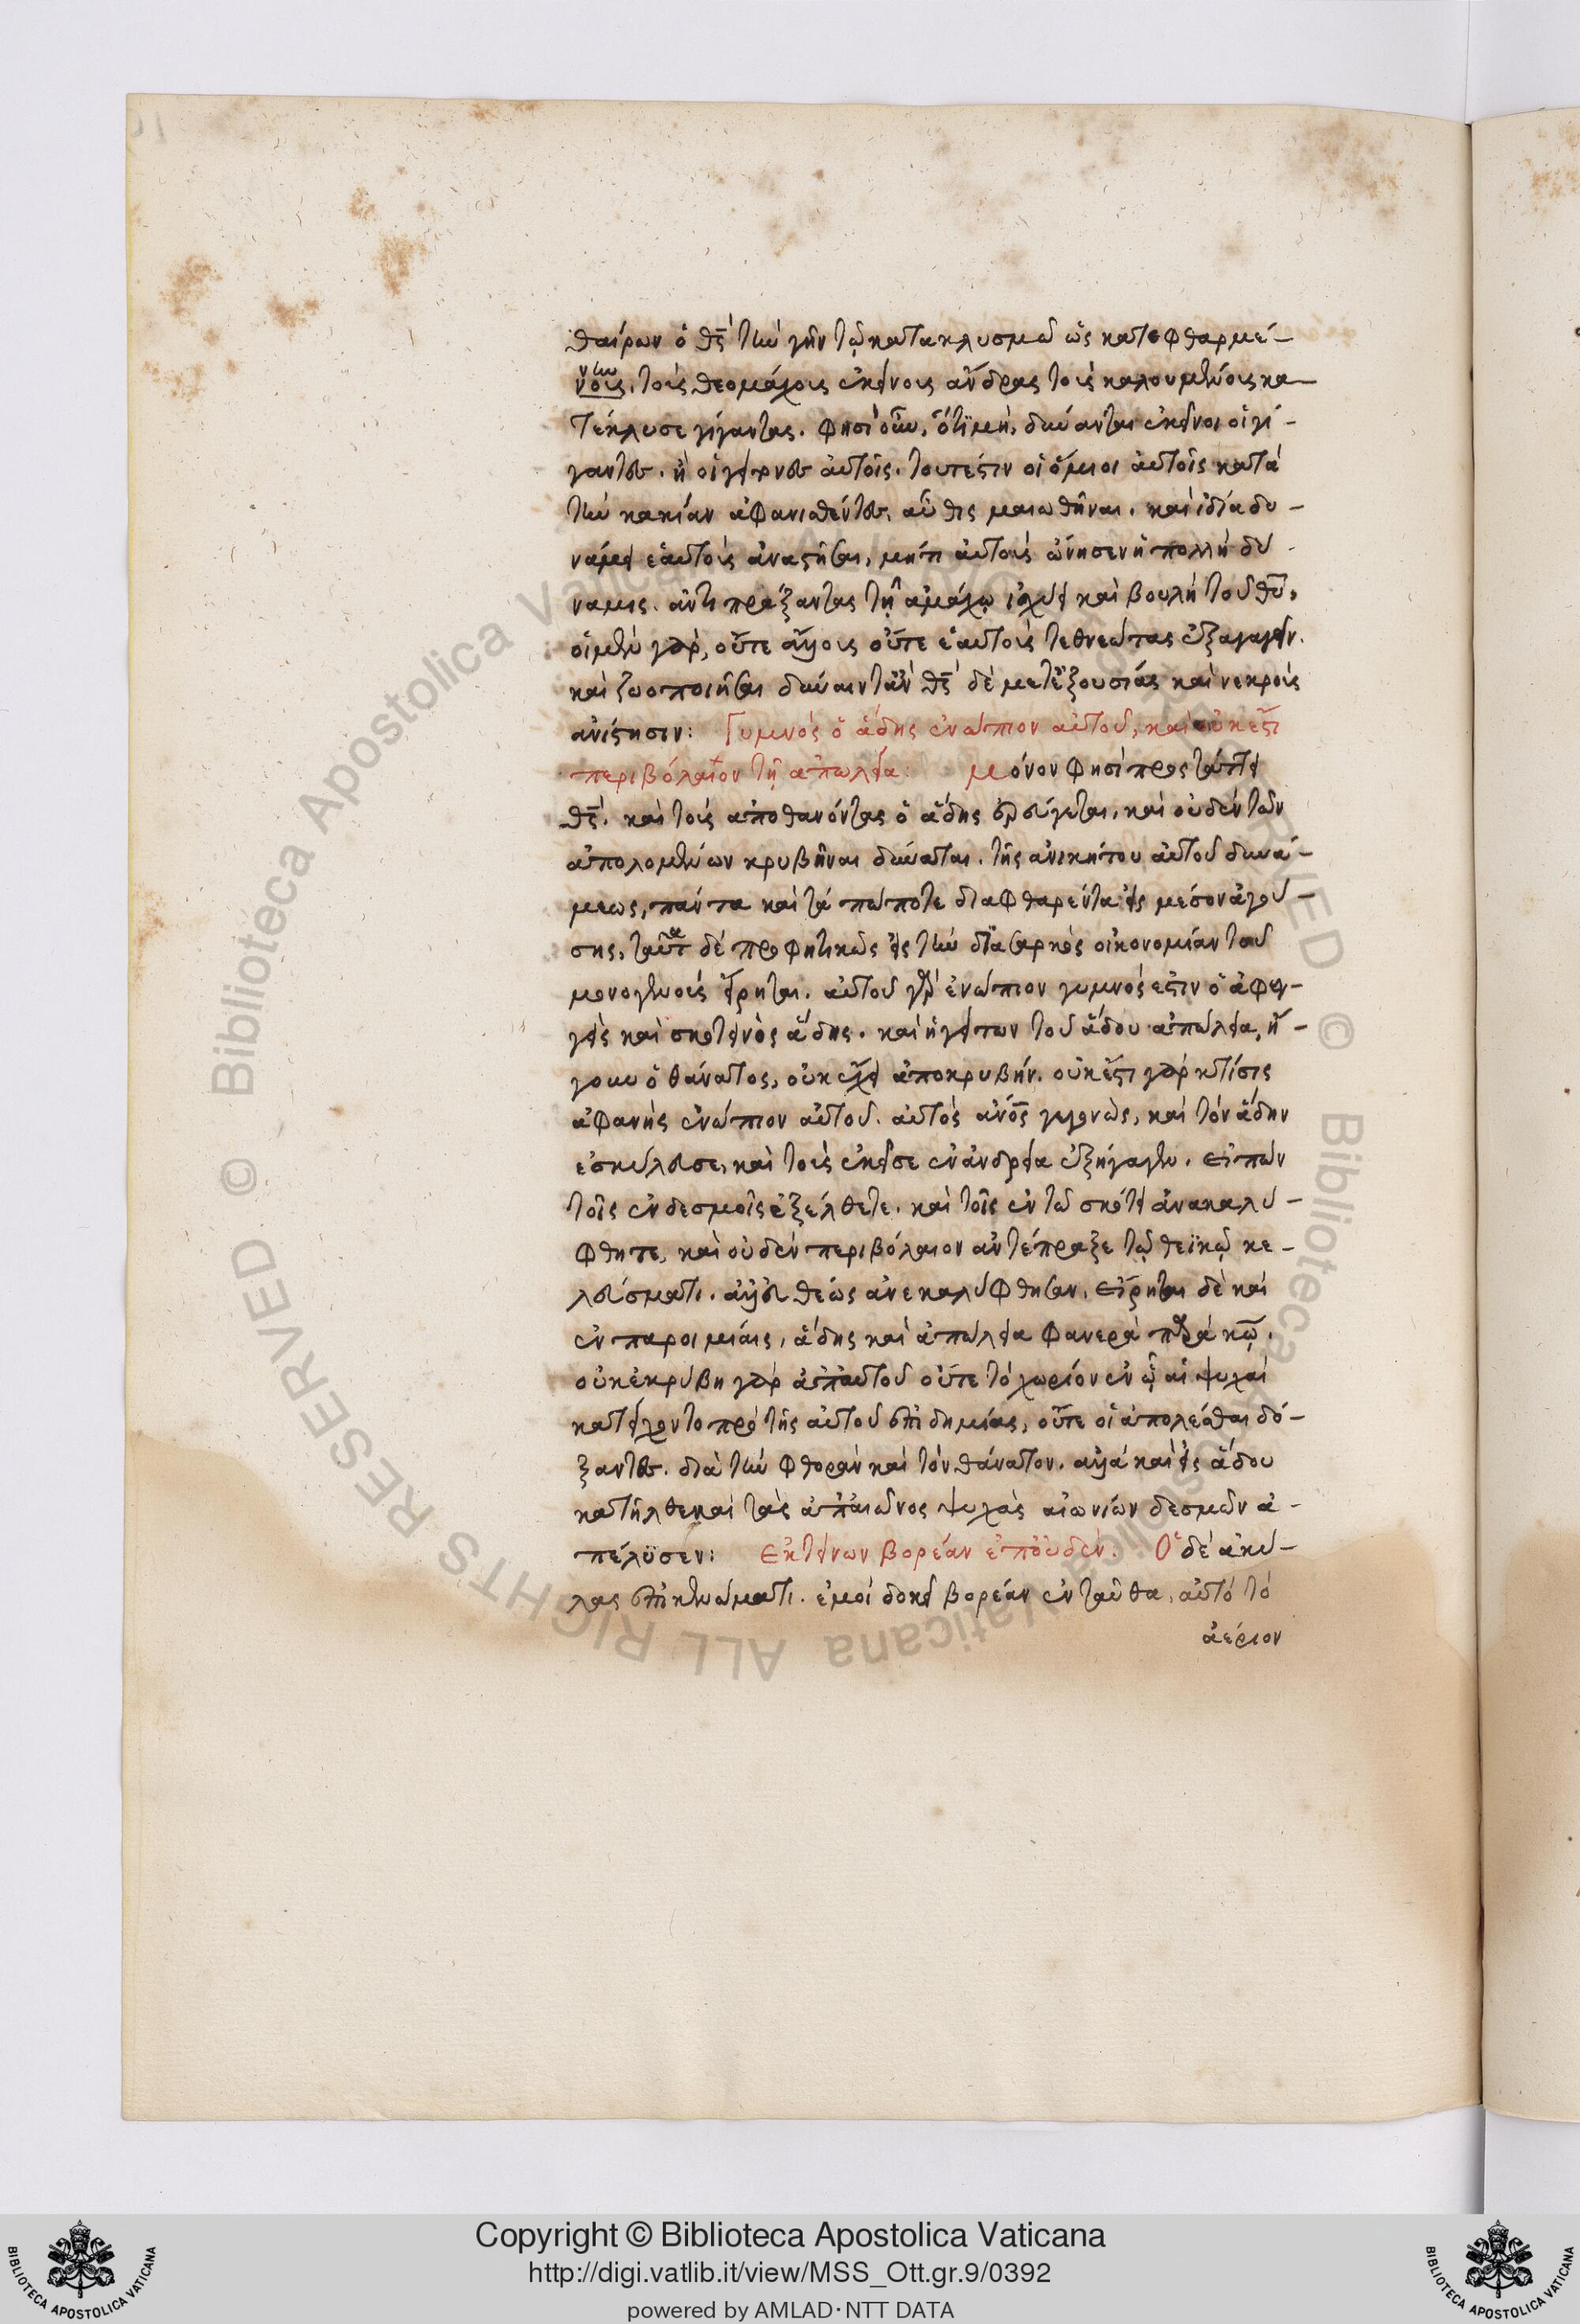 θαίρων ὁ θς̅ τὴν γῆν τῷ κατακλυσμῶ ὡς κατεφθαρμέ-
νοις, τοὺς θεομάχους ἐκείνους ἄνδρας τοὺς καλουμένους κα-
τέκλυσε γίγαντας. φησὶ οὖν, ὅτι μὴ, δύνανται ἐκεῖνοι οἱ γί-
γαντες. ἢ οἱ γείτονες αὐτοῖς. τουτέστιν οἱ ὅμοιοι αὐτοῖς κατὰ
τὴν κακίαν ἀφανισθέντες, αὖθις μαιωθῆναι. καὶ ἰδία δυ-
νάμει ἑαυτοὺς ἀναστῆσαι, μήτι αὐτοὺς ὤνησεν ἡ πολλὴ δύ-
ναμις. ἀντιπράξαντας τῇ ἀμάχῳ ἰσχύει καὶ βουλῇ τοῦ θυ̅,
οἱ μὲν γὰρ, οὔτε ἄλλους οὔτε ἑαυτοὺς τεθνεώτας ἐξαγαγεῖν.
καὶ ζωοποιῆσαι δύναιντ' ἂν θς̅ δὲ μετ' ἐξουσίας καὶ νεκροὺς
ἀνίστησιν: Γυμνὸς ὁ ἅδης ἐνώπιον αὐτοῦ, καὶ οὐκ ἔστι
περιβόλαιον τῇ ἀπωλεία: μόνον φησὶ προστάττει
θς̅. καὶ τοὺς ἀποθανόντας ὁ ἅδης ἐρεύγεται, καὶ οὐδὲν τῶν
ἀπολομένων κρυβῆναι δύναται. τῆς ἀνικήτου αὐτοῦ δυνά-
μεως, πάντα καὶ τὰ πώποτε διαφθαρέντα εἰς μέσον ἀγού-
σης, ταῦτα δὲ προφητικῶς εἰς τὴν διὰ σαρκὸς οἰκονομίαν τοῦ
μονογενοῦς εἴρηται. αὐτοῦ γὰρ ἐνώπιον γυμνὸς ἐστιν ὁ ἀφεγ-
γὴς καὶ σκοτεινὸς ἅδης. καὶ ἡ γείτων τοῦ ἅδου ἀπώλεια, ἤ-
γουν ὁ θάνατος, οὐκ ἔχει ἀποκρυβήν. οὐκ ἔστι γὰρ κτίσις
ἀφανὴς ἐνώπιον αὐτοῦ. αὐτὸς ἄνο̅ς γεγονὼς, καὶ τὸν ἅδην
ἐσκύλευσε, καὶ τοὺς ἐκεῖσε ἐν ἀνδρεία ἐξήγαγεν. εἰπὼν
τοῖς ἐν δεσμοῖς ἐξέλθετε. καὶ τοῖς ἐν τῶ σκότει ἀνακαλύ-
φθητε, καὶ οὐδὲν περιβόλαιον ἀντέπραξε τῷ θεϊκῷ κε-
λεύσματι. ἀλλ' εὐθέως ἀνεκαλύφθησαν, εἴρηται δὲ καὶ
ἐν παροιμίαις, ἅδης καὶ ἀπώλεια φανερὰ παρὰ κω̅.
οὐκ ἐκρύβη γὰρ ἀπ' αὐτοῦ οὔτε τὸ χωρίον ἐν ᾧ αἱ ψυχαὶ
κατείχοντο πρὸ τῆς αὐτοῦ ἐπιδημίας, οὔτε οἱ ἀπολέσθαι δό-
ξαντες. διὰ τὴν φθορὰν καὶ τὸν θάνατον. ἀλλὰ καὶ εἰς ἅδου
κατῆλθε καὶ τὰς ἀπ' αἰῶνος ψυχὰς αἰωνίων δεσμῶν ἀ-
πέλυσεν: Ἐκτείνων βορέαν ἐπ' οὐδέν. Ὁ δὲ ἀκύ-
λας ἐπὶ κενώματι. ἐμοὶ δοκεῖ βορέαν ἐνταῦθα, αὐτὸ τὸ
ἀέριον